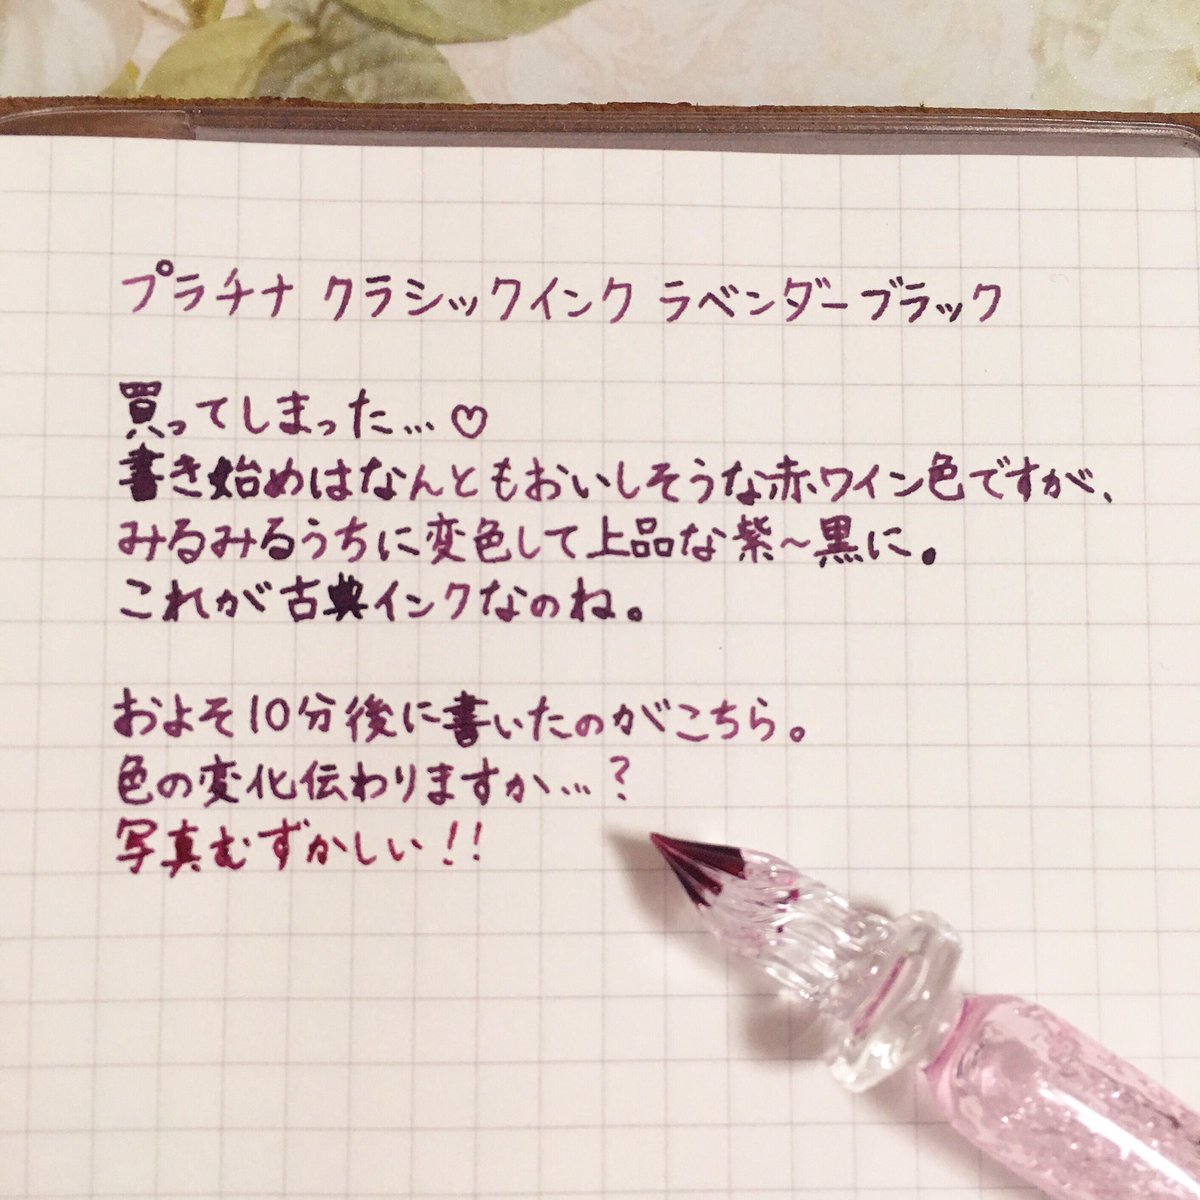 プラチナ クラシックインク ラベンダーブラック
買ってしまった…♡
書き始めはなんともおいしそうな赤ワイン色ですが、
みるみるうちに変色して上品な紫～黒に。
これが古典インクなのね。
およそ10分後に書いたのがこちら。
色の変化伝わりますか…?
写真むずかしい!!